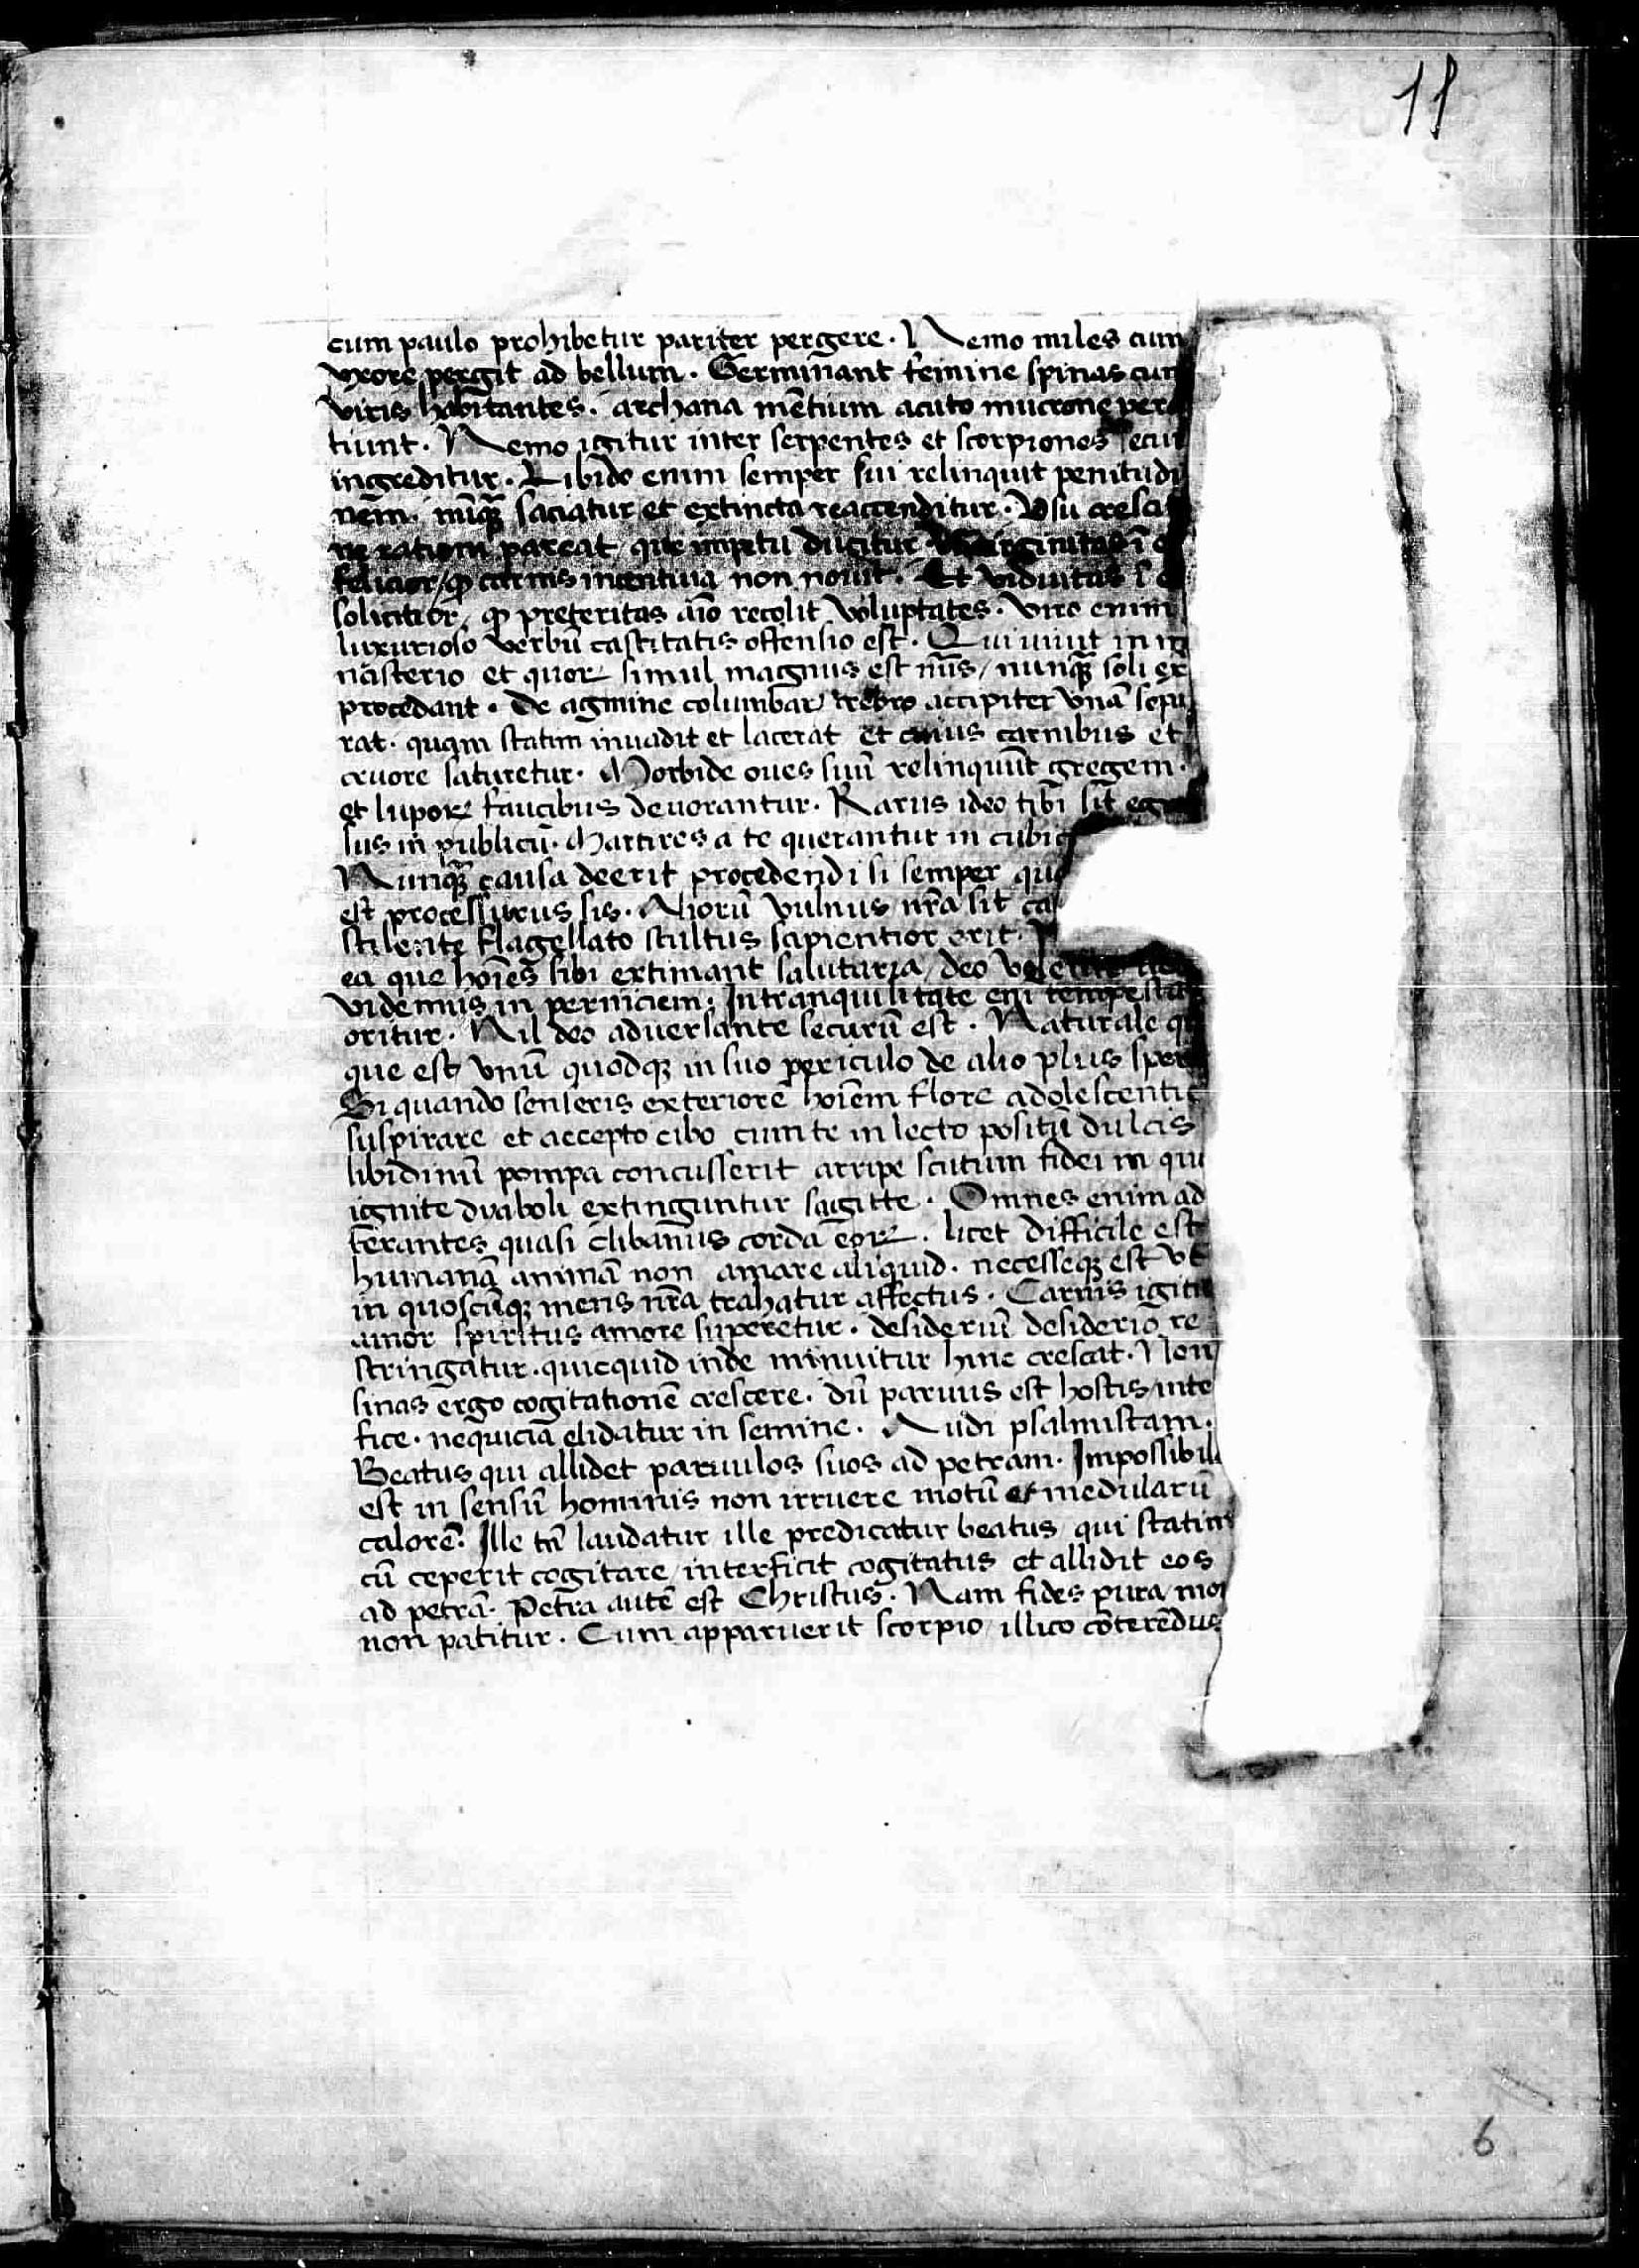 11
cum paulo prohibetur pariter pergere. Nemo miles cum
vxore pergit ad bellum. Germinant femine spinas cum
viris habitantes. archana mētium acuto mucrone per
tiunt. Nemo igitur inter serpentes et scorpiones
ingreditur. Libido enim semper sui relinquit penitudi
nem. nūqꝫ saciatur et extincta reaccenditur. Vsu
ne rationi pareat que impetu ducitur
felicior ꝙ carnis incentiua non nouit. Et viduitas
solicitior, ꝙ preteritas aīo recolit voluptates. Viro enim
luxurioso verbū castitatis offensio est. Qui uiuūt in
nasterio et quoꝝ simul magnus est nūs, nunqꝫ soli
procedant. De agmine columbaꝝ crebro accipiter vnā sepa
rat. quam statim inuadit et lacerat et cuius carnibus et
cruore saturetur. Morbide oues suū relinquūt gregem.
et lupoꝝ faucibus deuorantur. Rarus ideo tibi sit
sus in publicū. Martires a te querantur in
Nunqꝫ causa deerit procedendi si semper
est processurus sis. Aliorū vulnus nr̄a sit
stilente flagellato stultus sapientior erit.
ea que hoīes sibi extimant salutaria, deo
videmus in perniciem. In tranquilitate eni
oritur. Nil deo aduersante securū est. Naturale
que est vnū quodqꝫ in suo periculo de alio plus
Si quando senseris exteriorē hoīem flore adolescentie
suspirare et accepto cibo cum te in lecto positū dulcis
libidinū pompa concusserit arripe scutum fidei in
ignite dyaboli extinguntur sagitte. Omnes enim ad
terantes quasi clibanus corda eoꝝ. licet difficile est
humanā animā non amare aliquid. necesseqꝫ est vt
in quoscūqꝫ mens nr̄a trahatur affectus. Carnis
amor spiritus amore superetur. desideriū desiderio re
stringatur. quicquid inde minuitur hinc crescat. Non
sinas ergo cogitationē crescere. dū paruus est hostis inte
fice. nequicia elidatur in semine. Audi psalmistam.
Beatus qui allidet paruulos suos ad petram.
est in sensū hominis non irruere motū et medularū
calorē. Ille tn̄ laudatur ille predicatur beatus qui statim
cū ceperit cogitare interficit cogitatus et allidit eos
ad petrā. Petra autē est Christus. Nam fides pura
non patitur. Cum apparuerit scorpio illico cōterēdus
6